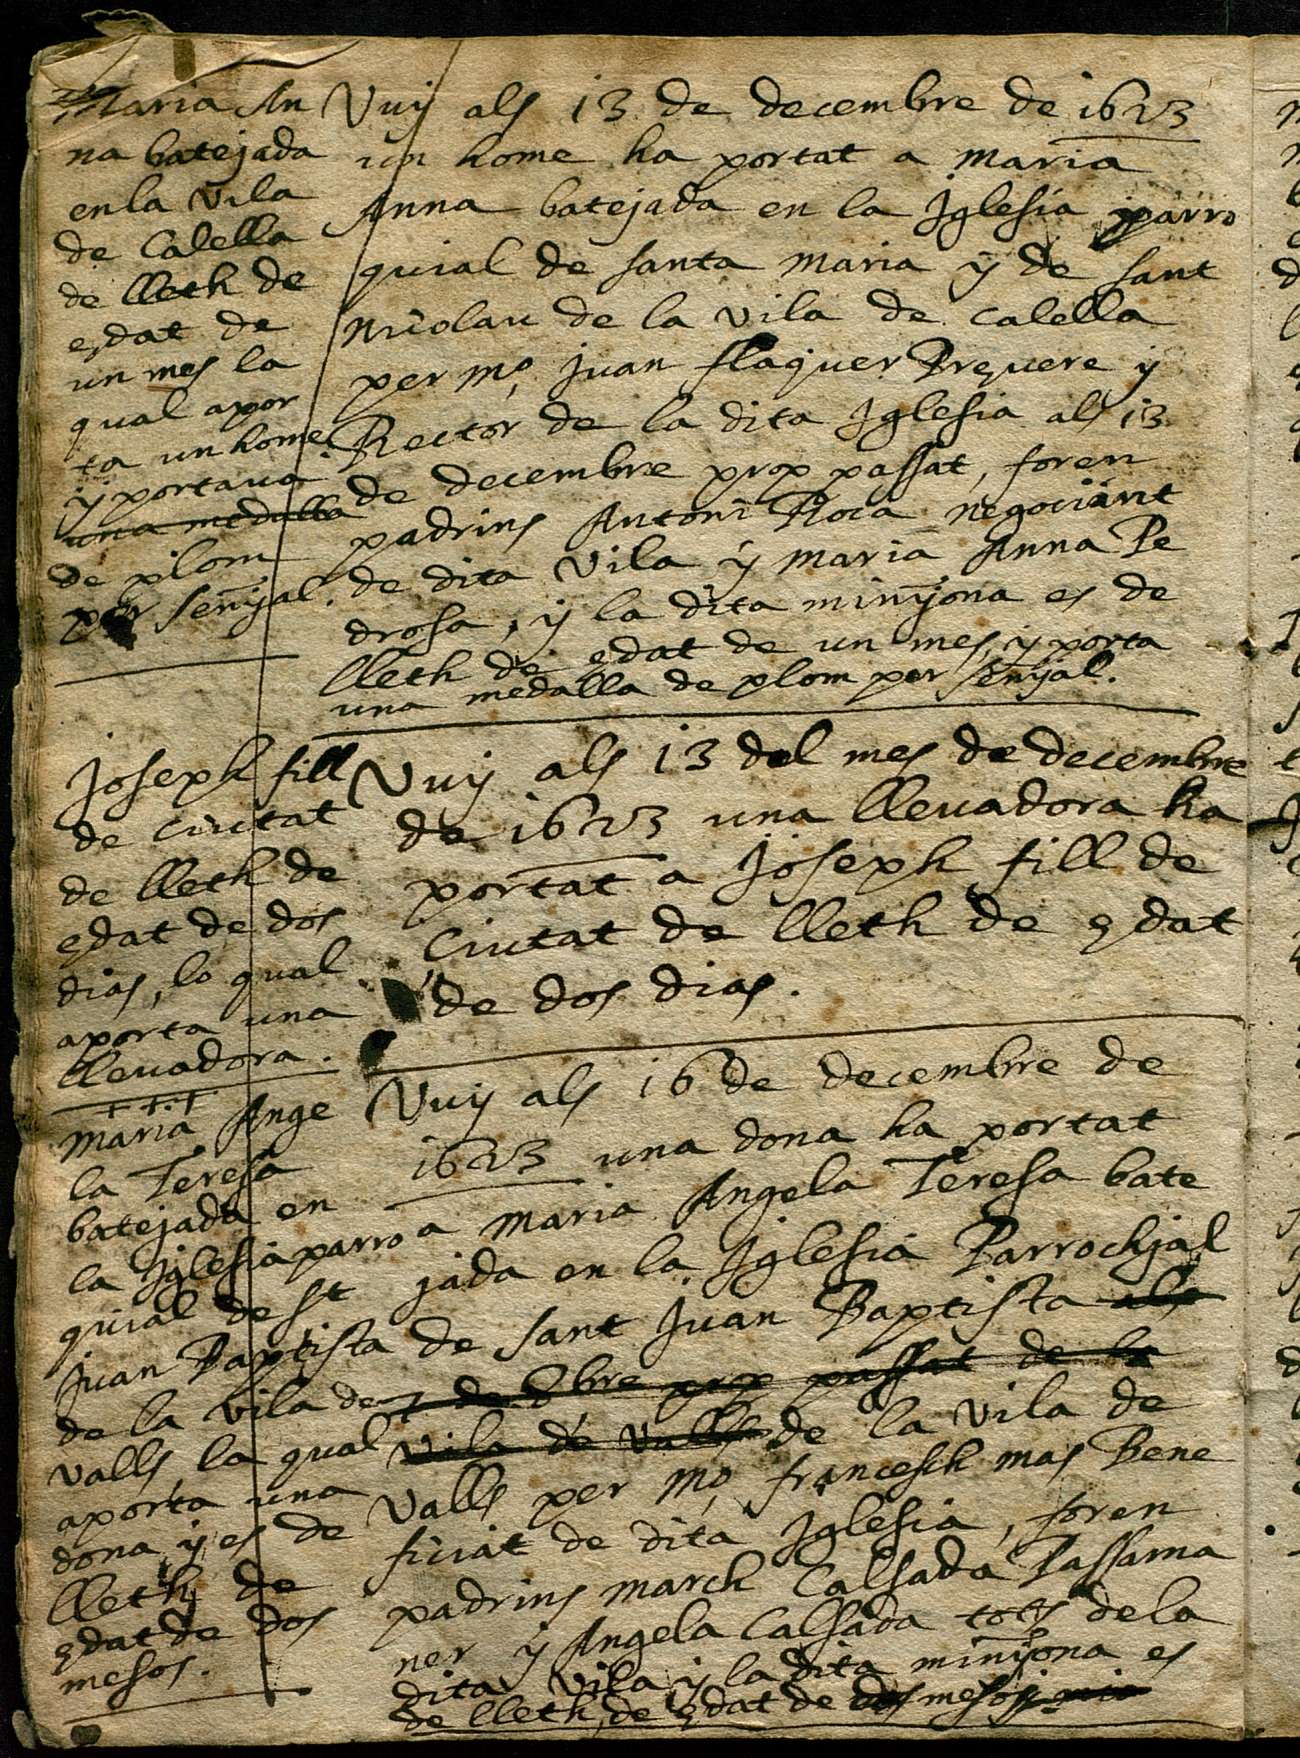 Maria An
na batejada
en la vila
de Calella
de lleth de
edat de
un mes la
qual apor
ta un home
y portava
una medalla
de plom
per señyal.
Vuy als 13 de decembre de 1623
un home ha portat a maria
Anna batejada en la Jglesia parro
quial de santa maria y de sant
Nicolau de la vila de Calella
per mº Juan flaquer Prevere y
Rector de la dita Jglesia als 13
de decembre prop passat, foren
padrins Antoni Roca negociant
de dita vila y maria Anna Pe
drosa, y la dita miñyona es de
lleth de edat de un mes, y porta
una medalla de plom per señyal.
Joseph fill
de Ciutat
de lleth de
edat de dos
dias, lo qual
aporta una
llevadora.
Vuy als 13 del mes de decembre
de 1623 una llevadora ha
portat a Joseph fill de
Ciutat de lleth de edat
de dos dias.
Maria Ange
la Teresa
batejada en
la Jglesia parro
quial de st
Juan Baptista
de la vila de
valls, la qual
aporta una
dona y es de
lleth, de
edat de dos
mesos.
Vuy als 16 de decembre de
1623 una dona ha portat
a maria Angela Teresa bate
jada en la Jglesia Parrochjal
de sant Juan Baptista als
de bre prop passat de la
vila de valls de la vila de
Valls per mº francesch mas Bene
ficiat de dita Jglesia, foren
padrins march Calsada Passama
ner y Angela Calsada tots de la
dita vila y la dita miñyona es
de lleth, de edat de dos mesos